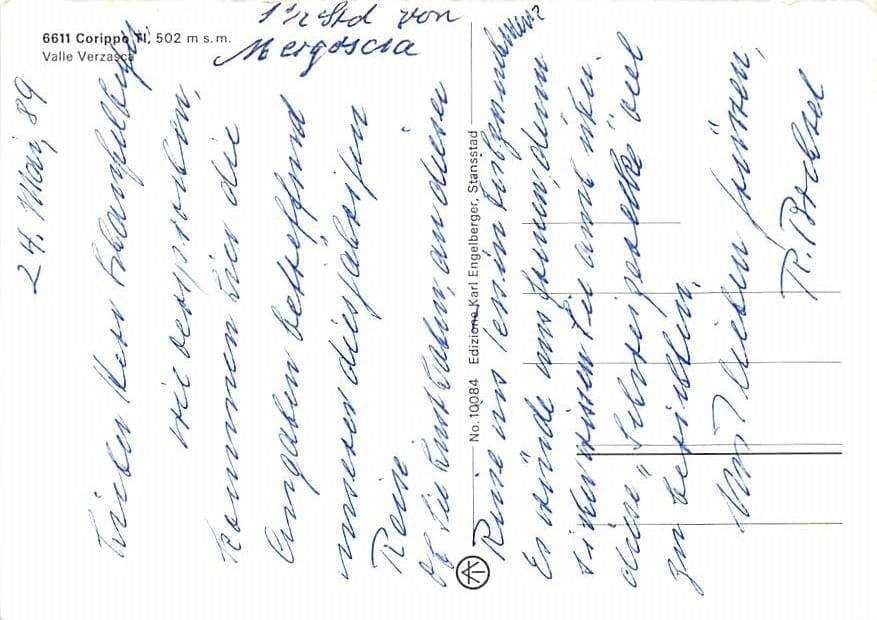 6611 Corippo TI, 502 m s.m.
Valle Verzasca
1 1/2 Std von
Mergoscia
24. Mai, 89
Lieber Herr
wie versprochen,
kommen hier die
Angaben betreffend
unserer diesjährigen
Reise
Ob Sie Lust haben, an dieser
No. 10084 Edizione Karl Engelberger, Stansstad
Reise ins Tessin teilzunehmen?
Es würde uns freuen, denn
sicher wissen Sie amt
diese "Schweizerecke" viel
zu berichten.
Mit lieben Grüssen,
R. Bechtel